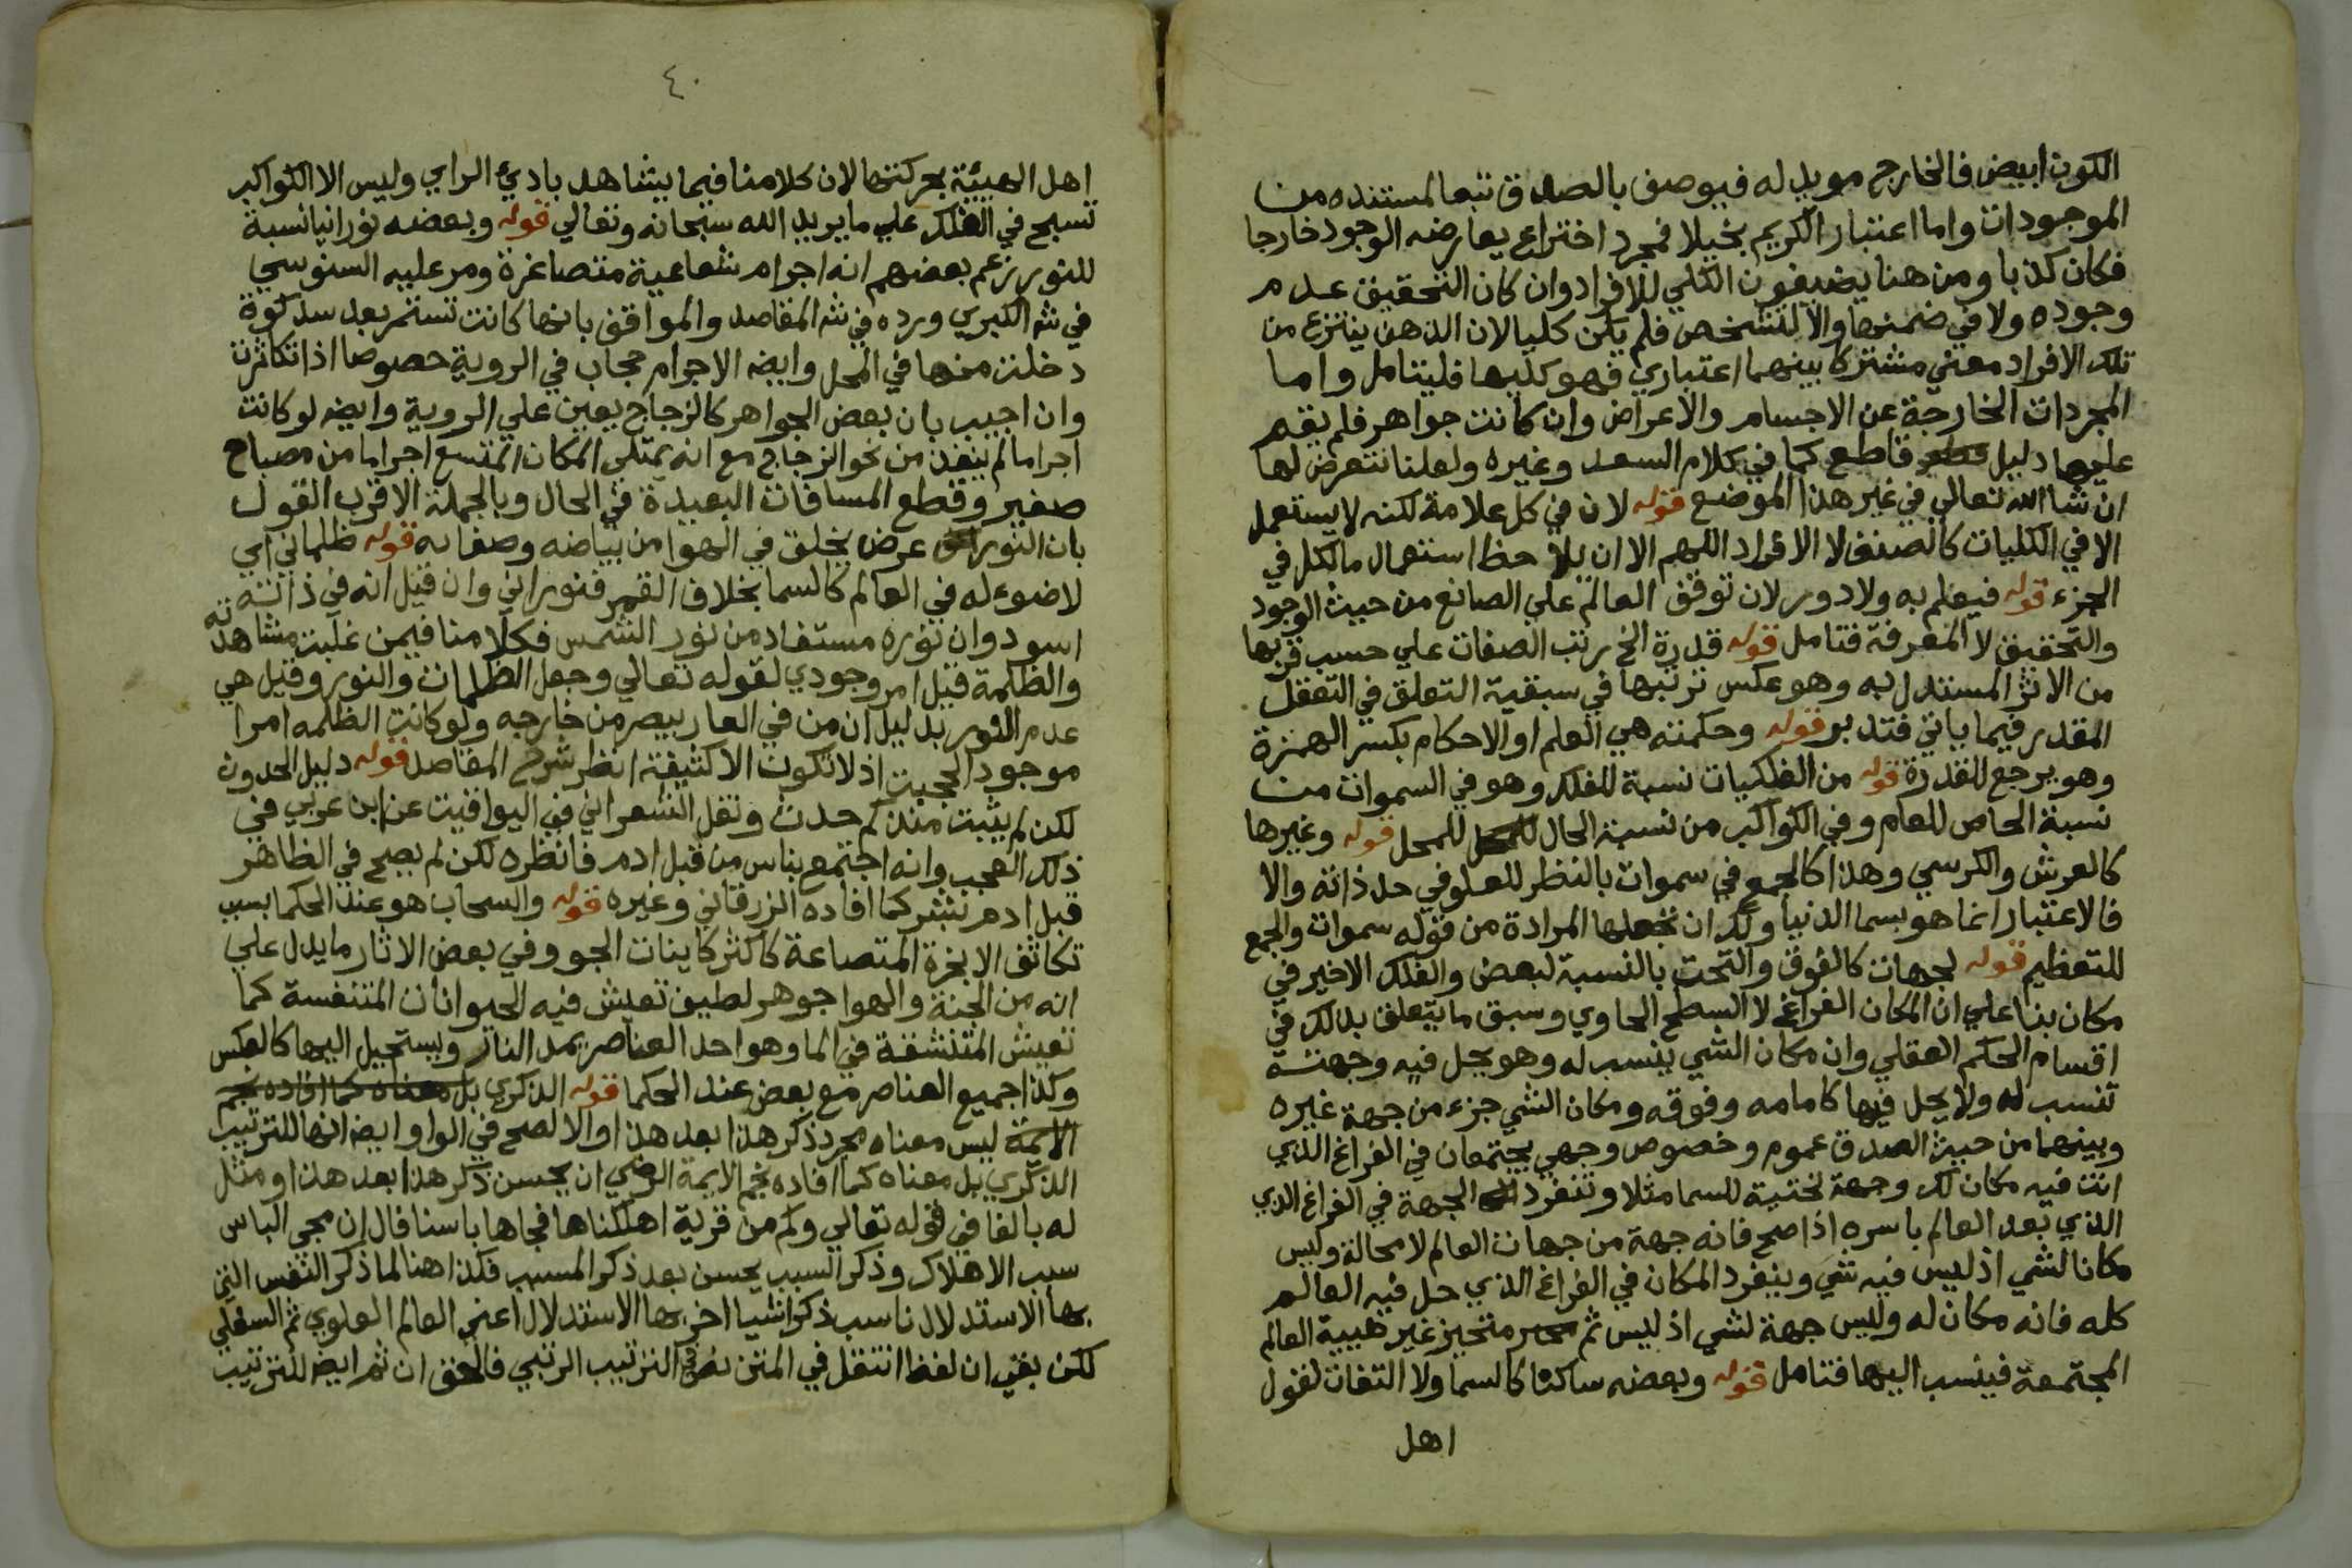 الكون ابيض فالخارج مويد له فيوصف بالصدق تبعا لمستنده من
الموجودات واما اعتبار الكريم بخيلا فمجرد اختراع يعارضه الوجود خارجا
فكان كذبا ومن هنا يضيفون الكلي للافراد وان كان التحقيق عدم
وجوده ولا في ضمنها والا لتشخص فلم يكن كليا لان الذهن ينتزع من
تلك الافراد معني مشتركا بينهما اعتباري فهو كليها فليتامل واما
المجردات الخارجة عن الاجسام والاعراض وان كانت جواهر فلم يقم
عليها دليل قاطع كما في كلام السعد وغيره ولعلنا نتعرض لها
ان شا الله تعالي في غير هذا الموضع قوله لان في كل علامة لكنه لا يستعمل
الا في الكليات كالصنف لا الافراد اللهم الا ان يلاحظ استعمال مالكل في
الجزء قوله فيعلم به ولا دور لان توقف العالم علي الصانع من حيث الوجود
والتحقيق لا المعرفة فتامل قوله قدرة الخ رتب الصفات علي حسب قربها
من الاثر المستدل به وهو عكس ترتبها في سبقية التعلق في التعقل
المقدر فيما ياتي فتدبر قوله وحكمته هي العلم او الاحكام بكسر الهمزة
وهو يرجع للقدرة قوله من الفلكيات نسبة للفلك وهو في السموات من
نسبة الخاص للعام وفي الكواكب من نسبة الحال للمحل قوله وغيرها
كالعرش والكرسي وهذا كالجمع في سموات بالنظر للعلو في حد ذاته والا
فالاعتبار انما هو بسما الدنيا ولك ان تجعلها المرادة من قوله سموات والجمع
للتعظيم قوله لجهات كالفوق والتحت بالنسبة لبعض والفلك الاخير في
مكان بنا علي ان المكان الفراغ لا السطح الحاوي وسبق ما يتعلق بذلك في
اقسام الحكم العقلي وان مكان الشي ينسب له وهو يحل فيه وجهته
تنسب له ولا يحل فيها كامامه وفوقه ومكان الشي جزء من جهة غيره
وبينهما من حيث الصدق عموم وخصوص وجهي يجتمعان في الفراغ الذي
انت فيه مكان لك وجهة تحتية للسما مثلا وتنفرد الجهة في الفراغ الذي
الذي بعد العالم باسره اذا صح فانه جهة من جهات العالم لا محالة وليس
مكانا لشي اذ ليس فيه شي وينفرد المكان في الفراغ الذي حل فيه العالم
كله فانه مكان له وليس جهة لشي اذ ليس ثم متحيز غير هيبية العالم
المجتمعة فينسب اليها فتامل قوله وبعضه ساكنا كالسما ولا التفات لقول
اهل
٤٠
اهل الهيئة بحركتها لان كلامنا فيما يشاهد بادئ الراي وليس الا الكواكب
تسبح في الفلك علي ما يريد الله سبحانه وتعالي قوله وبعضه نورانيا نسبة
للنور زعم بعضهم انه اجرام شعاعية متصاغرة ومر عليه السنوسي
في شر الكبري ورده في شر المقاصد والمواقف بانها كانت تستمر بعد سد كوة
دخلت منها في المحل وايضه الاجرام حجاب في الروية خصوصا اذا تكاثرت
وان اجيب بان بعض الجواهر كالزجاج يعين علي الروية وايضه لو كانت
اجراما لم ينفذ من نحو الزجاج مع انه يمتلي المكان المتسع اجراما من مصباح
صغير وقطع المسافات البعيدة في الحال وبالجملة الاقرب القول
بان النور عرض يخلق في الهوا من بياضه وصفايه قوله ظلماني اي
لاضوء له في العالم كالسما بخلاف القمر فنوراني وان قيل انه في ذاته
اسود وان نوره مستفاد من نور الشمس فكلامنا فيمن غلبت مشاهدته
والظلمة قيل امر وجودي لقوله تعالي وجعل الظلمات والنور وقيل هي
عدم النور بدليل ان من في الغار يبصر من خارجه ولو كانت الظلمه امرا
موجودا لحجبت اذ لا تكون الا كثيفة انظر شرح المقاصد قوله دليل الحدوث
لكن لم يثبت منذ كم حدث ونقل الشعراني في اليواقيت عن ابن عربي في
ذلك العجب وانه اجتمع بناس من قبل ادم فانظره لكن لم يصح في الظاهر
قبل ادم بشر كما افاده الزرقاني وغيره قوله والسحاب هو عند الحكما بسبب
تكاثف الابخرة المتصاعة كاكثر كاينات الجو وفي بعض الاثار ما يدل علي
انه من الجنة والهوا جوهر لطيف تعيش فيه الحيوانات المتنفسة كما
تعيش المتنشقة في الما وهو احد العناصر يمد النار ويستحيل اليها كالعكس
وكذا جميع العناصر مع بعض عند الحكما قوله الذكري بل معناه كما افاده نجم
الائمة ليس معناه مجرد ذكر هذا بعد هذا او الا لصح في الواو ايضه انها للترتيب
الذكري بل معناه كما افاده نجم الايمة الرضي ان يحسن ذكر هذا بعد هذا ومثل
له بالفا في قوله تعالي وكم من قرية اهلكناها فجاها باسنا قال ان مجي الباس
سبب الاهلاك وذكر السبب يحسن بعد ذكر المسبب فكذا هنا لما ذكر النفس التي
بها الاستدلال ناسب ذكر اشيا اخر بها الاستدلال اعني العالم العلوي ثم السفلي
لكن بقي ان لفظ انتقل في المتن نص في الترتيب الرتبي فالحق ان ثم ايضه للترتيب